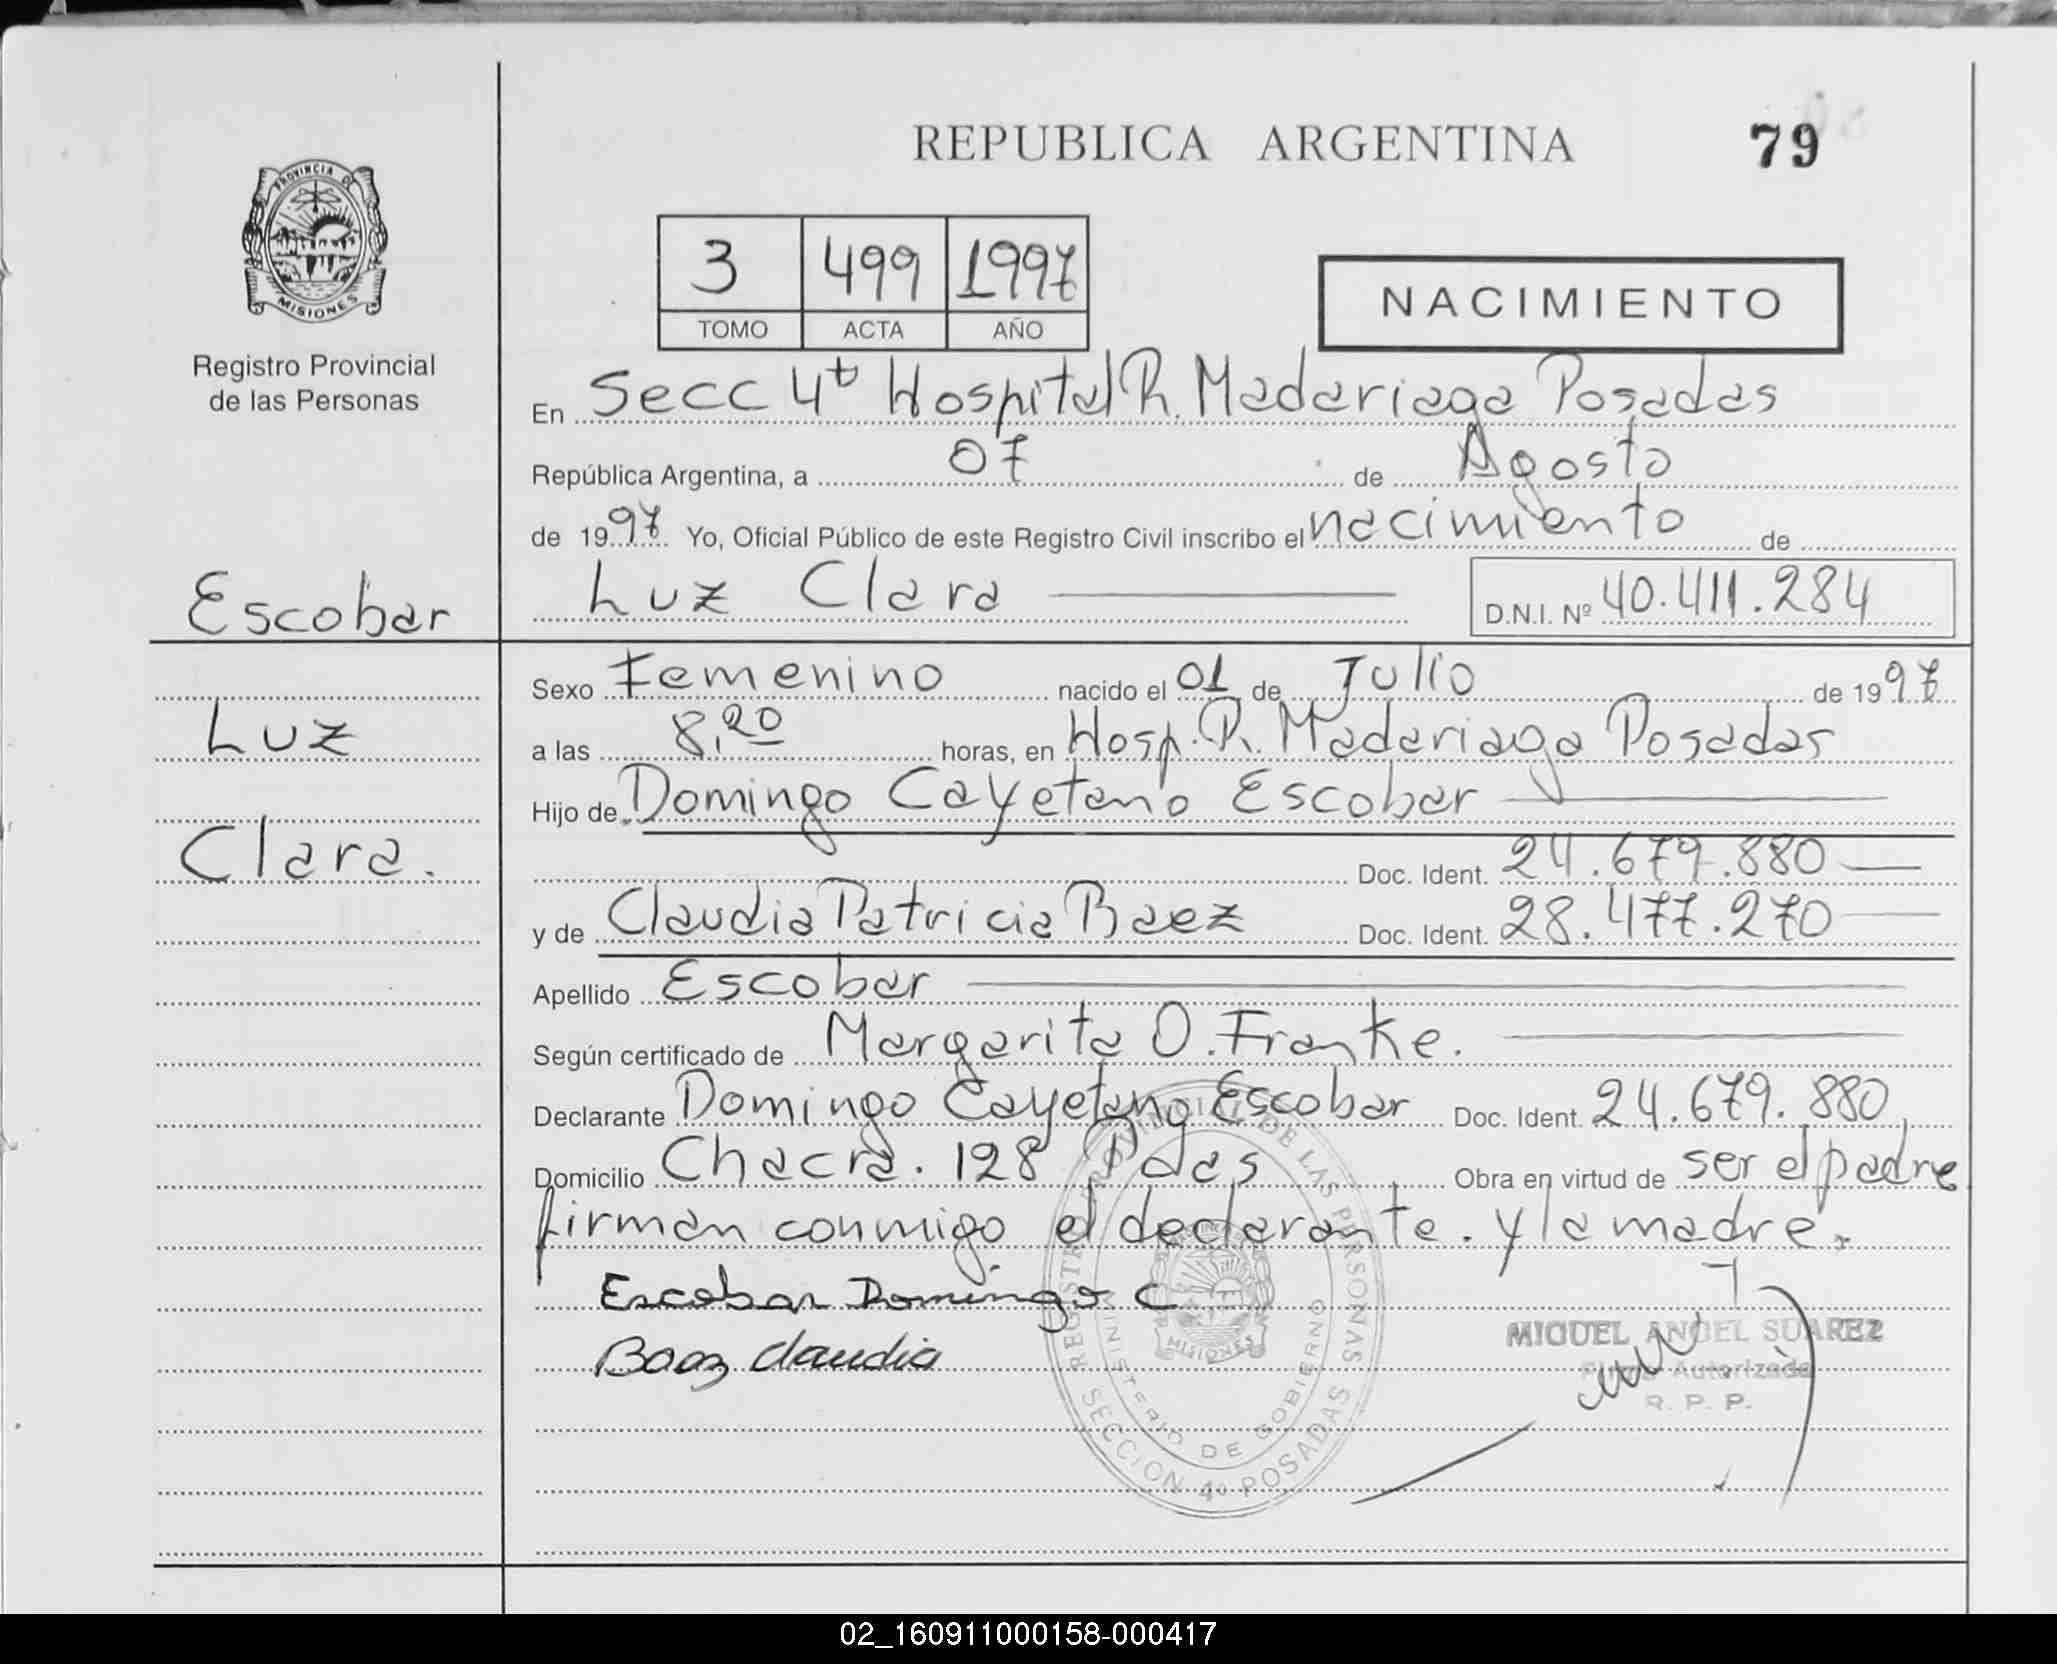 REPUBLICA ARGENTINA 79
PROVINCIA DE
MISIONES
Registro Provincial
de las Personas
3 499 1997
TOMO ACTA AÑO
NACIMIENTO
En Secc 4ta Hospital R. Madariaga Posadas
República Argentina, a 07 de Agosto
de 1997 Yo, Oficial Público de este Registro Civil inscribo el nacimiento de
Luz Clara D.N.I. Nº 40.411.284
Escobar
Luz
Clara.
Sexo Femenino nacido el 01 de Julio de 1997
a las 8,20 horas, en Hosp. R. Madariaga Posadas
Hijo de Domingo Cayetano Escobar
Doc. Ident. 24.679.880
y de Claudia Patricia Baez Doc. Ident. 28.477.270
Apellido Escobar
Según certificado de Margarita O. Franke.
Declarante Domingo Cayetano Escobar Doc. Ident. 24.679.880
Domicilio Chacra. 128 Pdas Obra en virtud de ser el padre
firman conmigo el declarante. y la madre.
Escobar Domingo C
Baez Claudia
MIGUEL ANGEL SUAREZ
Firma Autorizada
R. P. P.
REGISTRO PROVINCIAL DE LAS PERSONAS
MINISTERIO DE GOBIERNO
MISIONES
SECCION 4º POSADAS
02_160911000158-000417